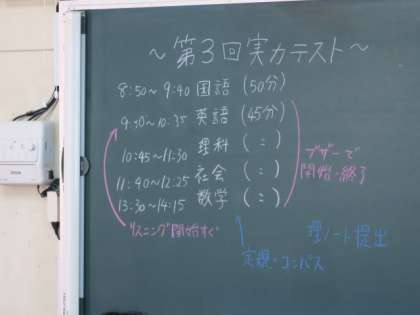 ～第3回実力テスト～
8:50～9:40 国語 (50分)
9:50～10:35 英語 (45分)
10:45～11:30 理科 (〃)
11:40～12:25 社会 (〃)
13:30～14:15 数学 (〃)
ブザーで
開始・終了
リスニング開始すぐ
定規・コンパス
理ノート提出